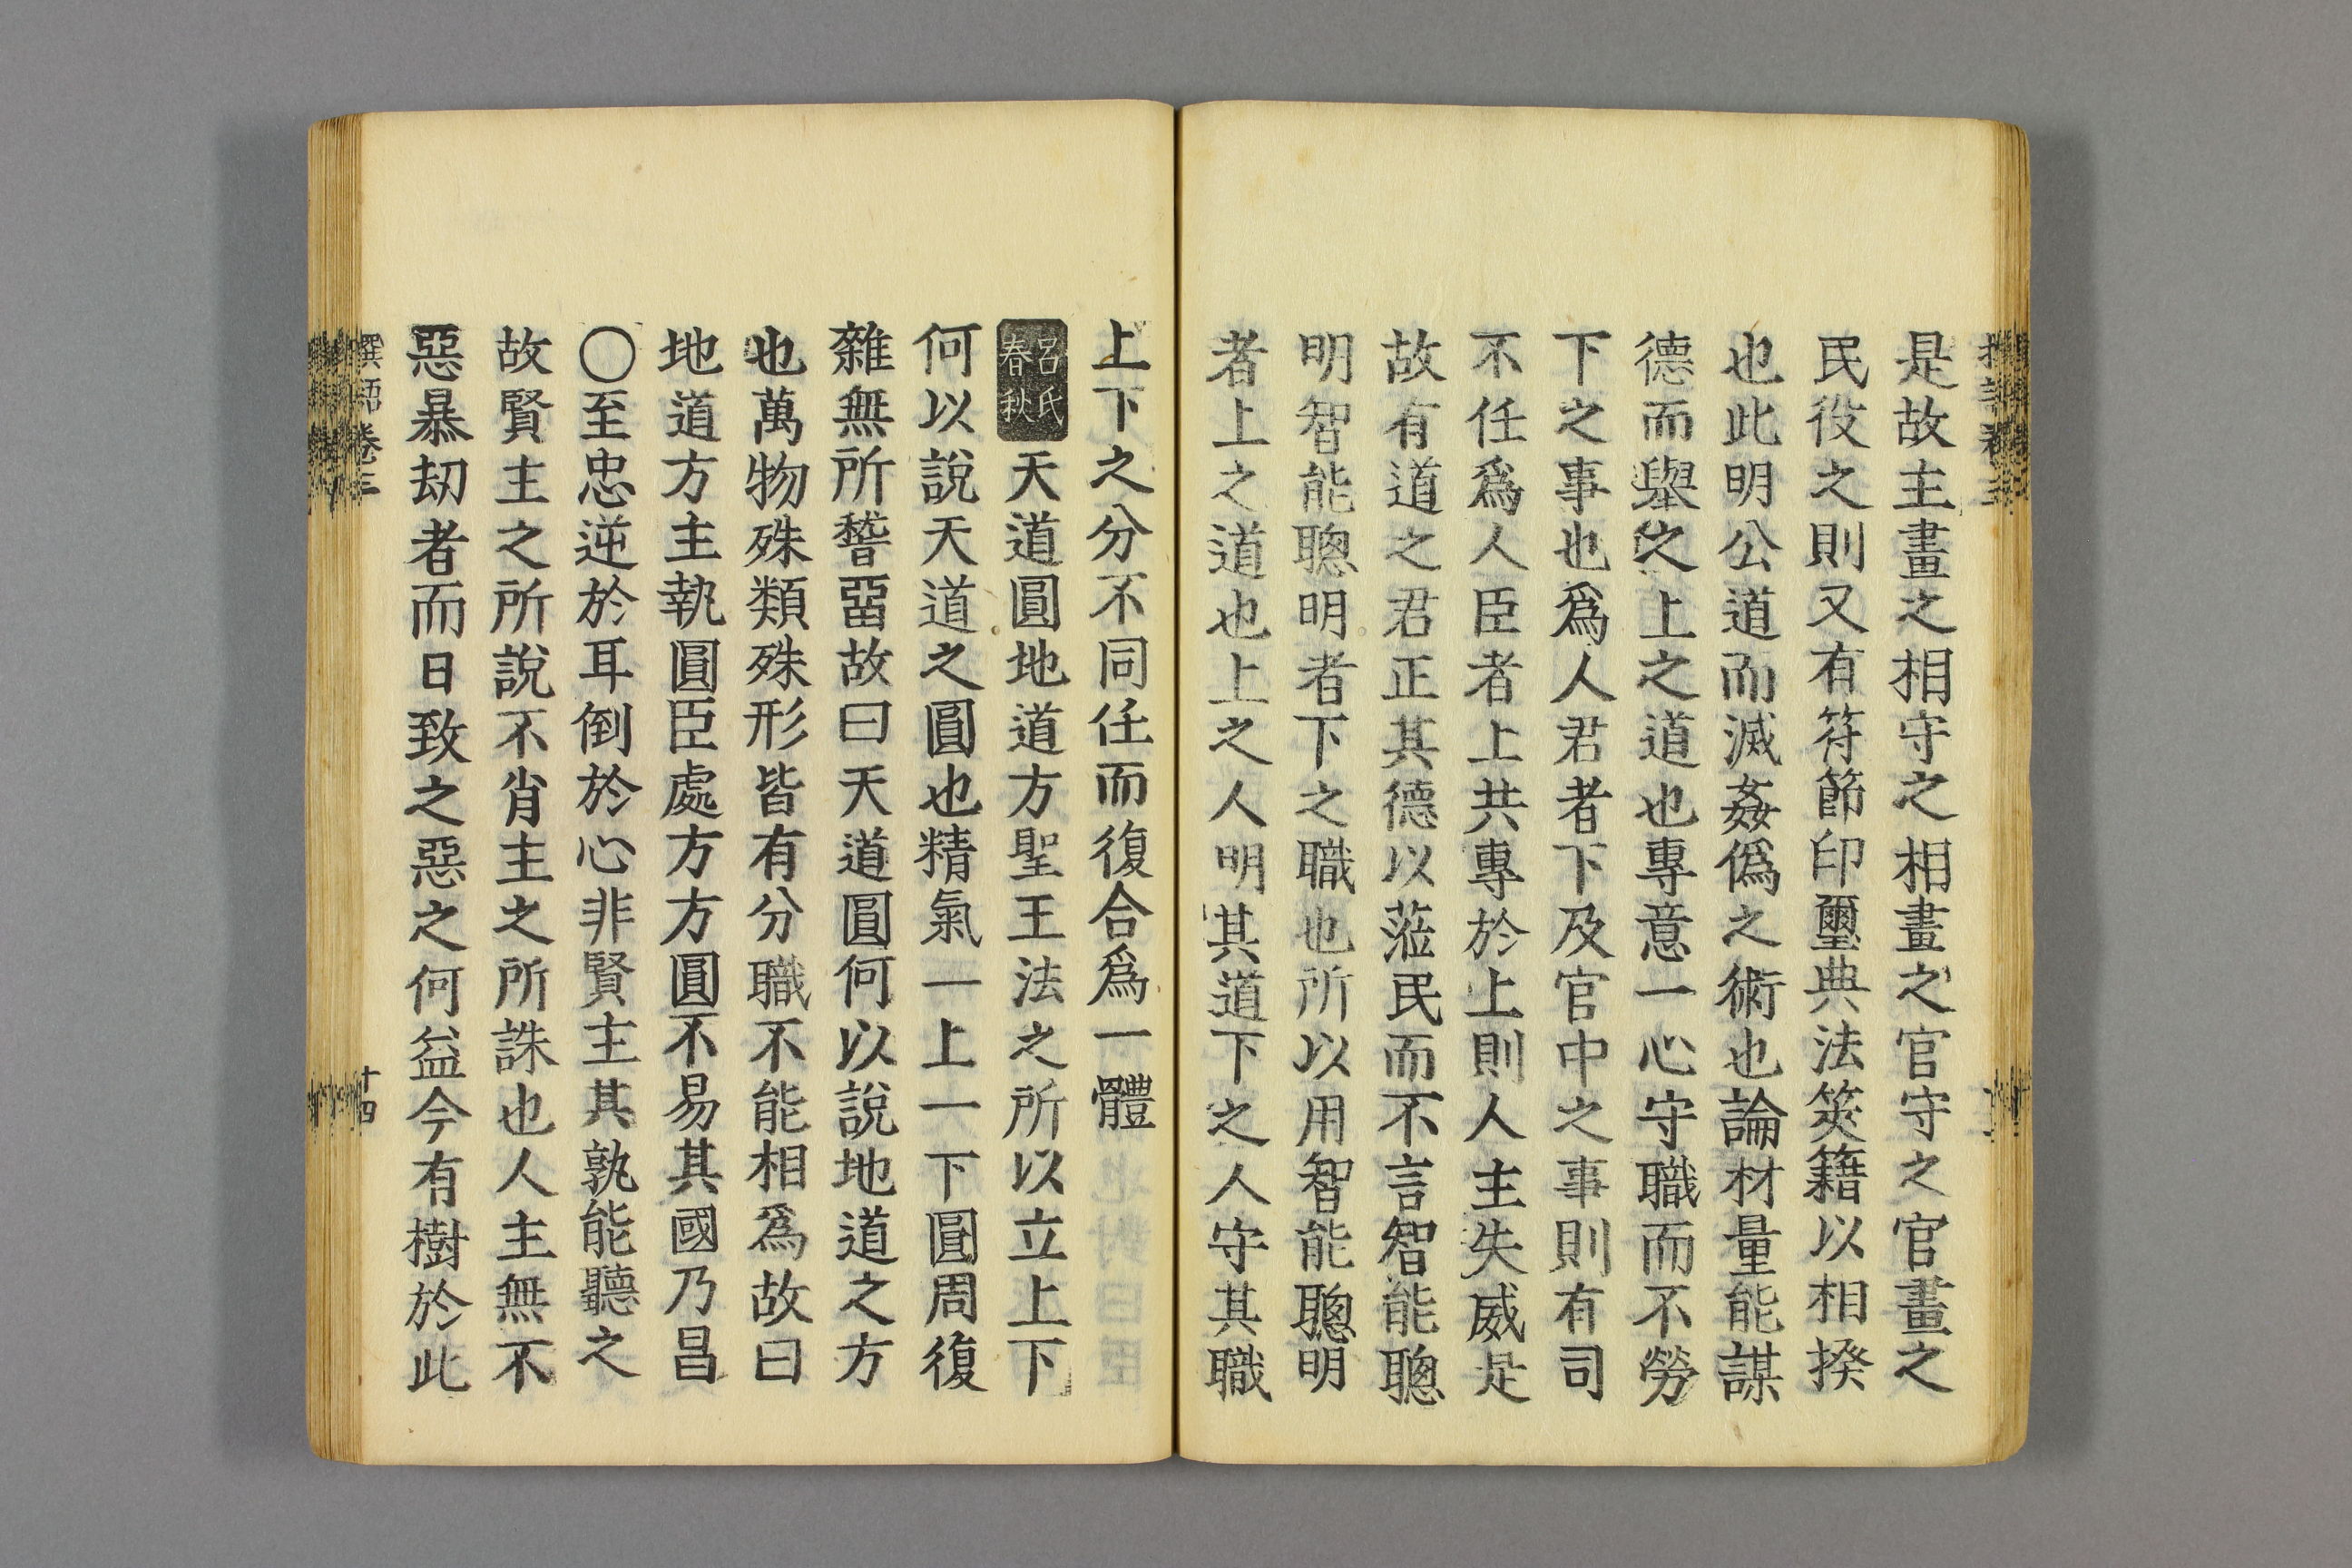 是故主畫之相守之相畫之官守之官畫之
民役之則又有符節印璽典法筴籍以相揆
也此明公道而滅姦僞之術也論材量能謀
德而舉之上之道也專意一心守職而不勞
下之事也爲人君者下及官中之事則有司
不任爲人臣者上共專於上則人主失威是
故有道之君正其德以蒞民而不言智能聰
明智能聰明者下之職也所以用智能聰明
者上之道也上之人明其道下之人守其職
上下之分不同任而復合爲一體
呂氏春秋 天道圓地道方聖王法之所以立上下
何以說天道之圓也精氣一上一下圓周復
雜無所稽畱故曰天道圓何以說地道之方
也萬物殊類殊形皆有分職不能相爲故曰
地道方主執圓臣處方方圓不易其國乃昌
〇至忠逆於耳倒於心非賢主其孰能聽之
故賢主之所說不肖主之所誅也人主無不
惡暴劫者而日致之惡之何益今有樹於此
撰語卷三
十四